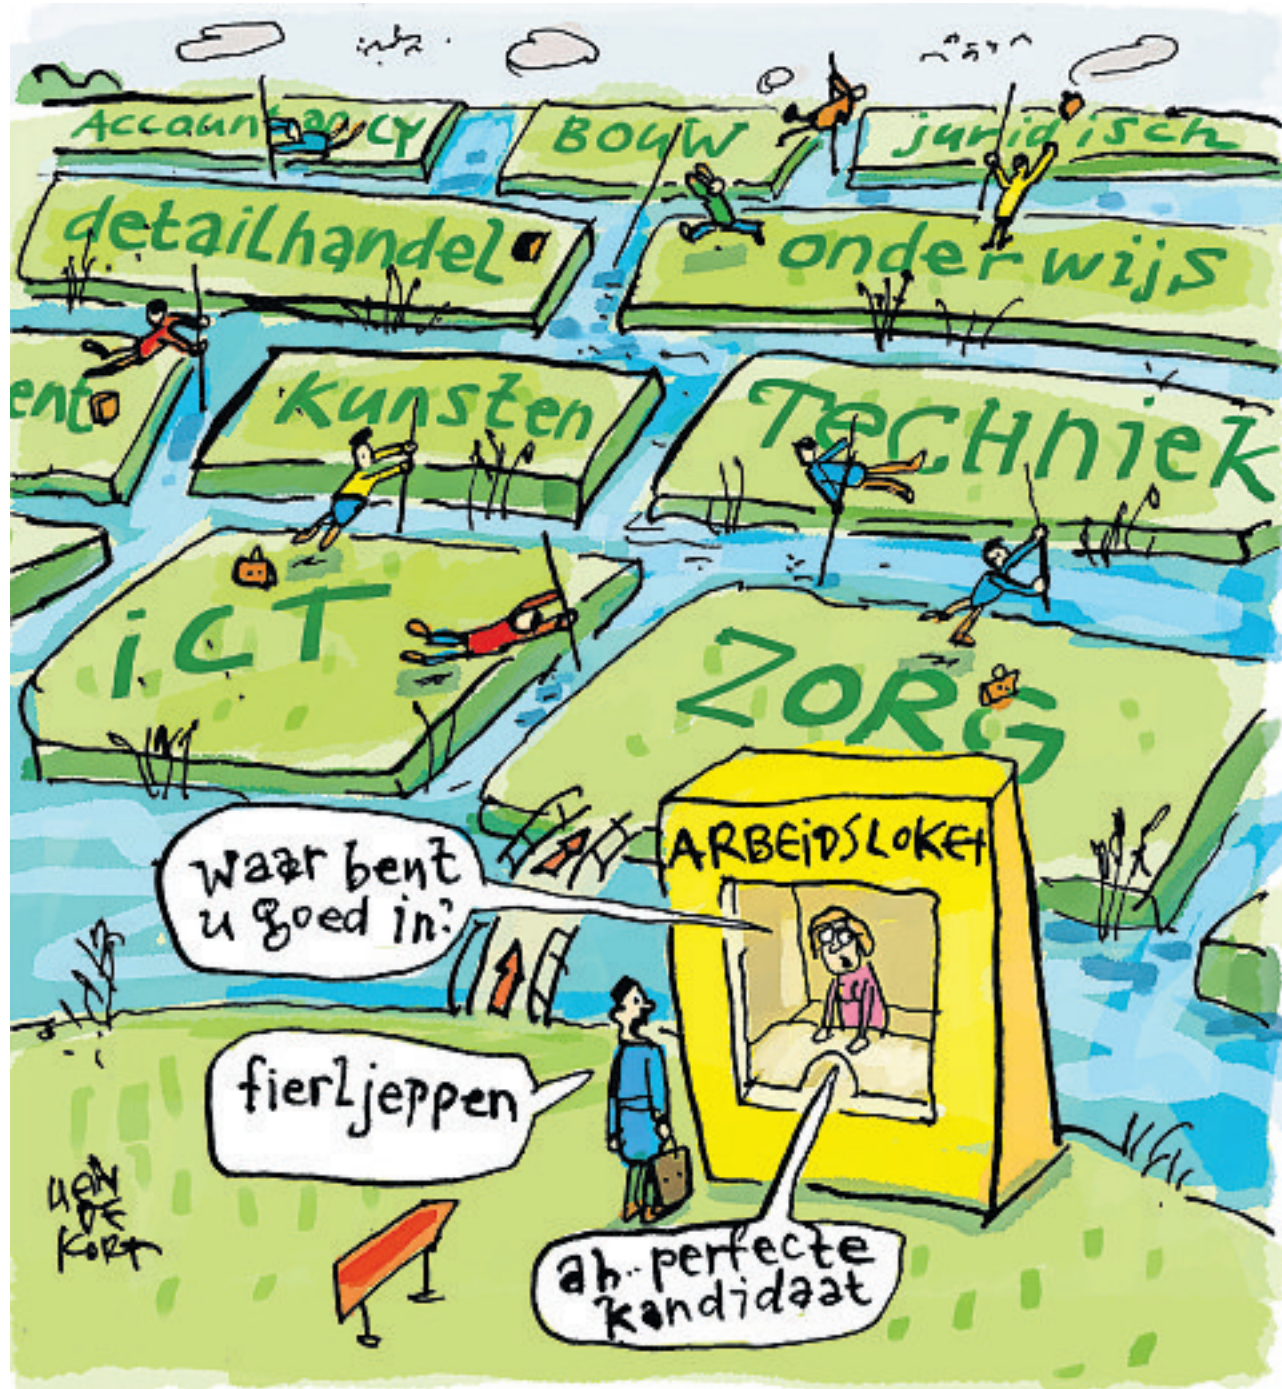 Accountancy
BOUW
juridisch
detailhandel
onderwijs
ent
Kunsten
TECHNIEK
iCT
ZORG
ARBEIDSLOKET
waar bent
u goed in?
fierljeppen
ah.. perfecte
kandidaat
HEIN
DE
KORT